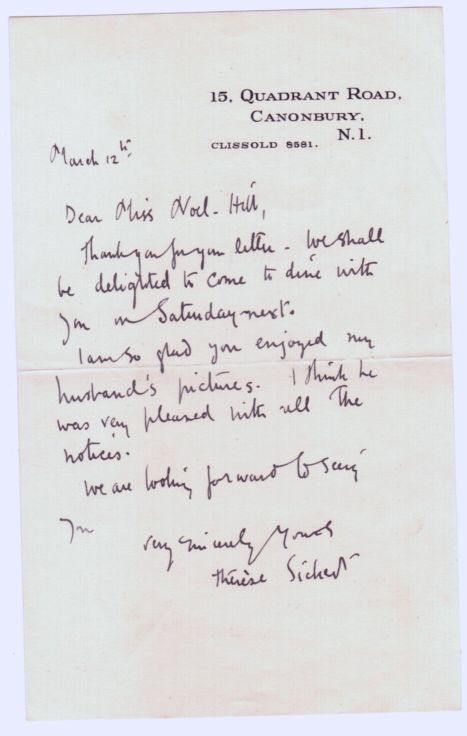 15, QUADRANT ROAD,
CANONBURY,
N.1.
CLISSOLD 8581.
March 12th.
Dear Miss Noel-Hill,
Thank you for your letter - We shall
be delighted to come to dine with
you on Saturday next.
I am so glad you enjoyed my
husband's pictures. I think he
was very pleased with all the
notices.
We are looking forward to seeing
you
Very sincerely yours
Thérèse Sickert